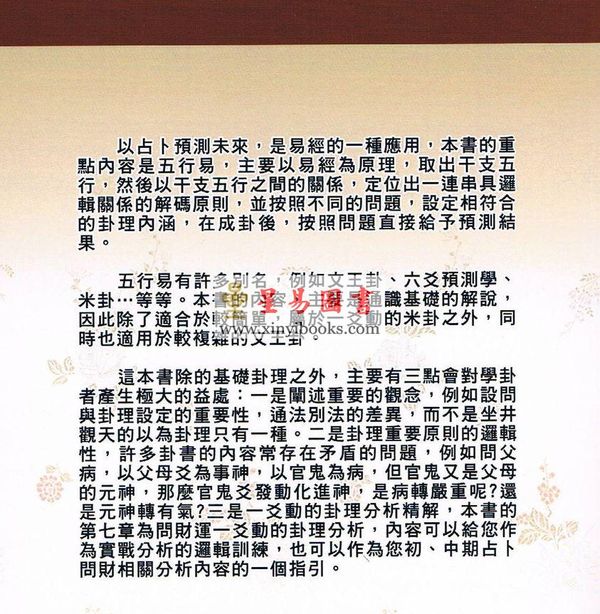 以占卜預測未來，是易經的一種應用，本書的重
點內容是五行易，主要以易經為原理，取出干支五
行，然後以干支五行之間的關係，定位出一連串具邏
輯關係的解碼原則，並按照不同的問題，設定相符合
的卦理內涵，在成卦後，按照問題直接給予預測結
果。
五行易有許多別名，例如文王卦、六爻預測學、
米卦…等等。本書的內容，主要是通識基礎的解說，
星易圖書
因此除了適合於較簡單，屬於一爻動的米卦之外，同
www.xinyibooks.com
時也適用於較複雜的文王卦。
這本書除的基礎卦理之外，主要有三點會對學卦
者產生極大的益處：一是闡述重要的觀念，例如設問
與卦理設定的重要性，通法別法的差異，而不是坐井
觀天的以為卦理只有一種。二是卦理重要原則的邏輯
性，許多卦書的內容常存在矛盾的問題，例如問父
病，以父母爻為事神，以官鬼為病，但官鬼又是父母
的元神，那麼官鬼爻發動化進神，是病轉嚴重呢?還
是元神轉有氣?三是一爻動的卦理分析精解，本書的
第七章為問財運一爻動的卦理分析，內容可以給您作
為實戰分析的邏輯訓練，也可以作為您初、中期占卜
問財相關分析內容的一個指引。